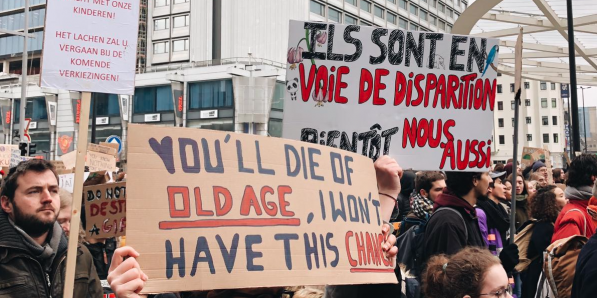 MET ONZE
KINDEREN!
HET LACHEN ZAL U
VERGAAN BIJ DE
KOMENDE
VERKIEZINGEN!
ILS SONT EN
VRAIE DE DISPARITION
BIENTÔT NOUS
AUSSI
YOU'LL DIE OF
OLD AGE, I WON'T
HAVE THIS CHANCE
DO NOT